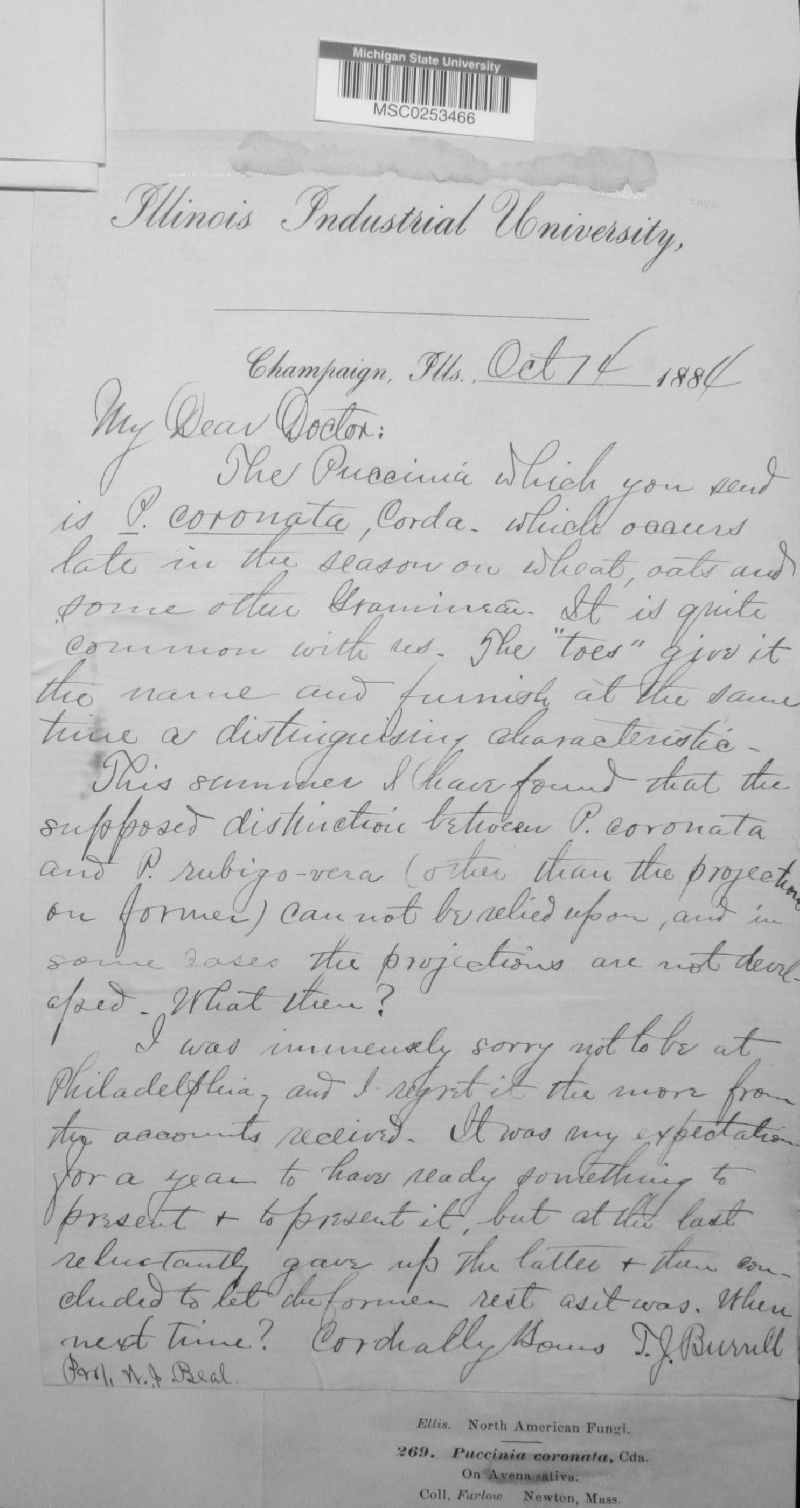 Michigan State University
MSC0253466
Illinois Industrial University,
Champaign, Ills., Oct 14 1884
My Dear Doctor:
The Puccinia which you send
is P. coronata, Corda. which occurs
late in the season on wheat, oats and
some other Gramineæ. It is quite
common with us. The "toes" give it
the name and furnish at the same
time a distinguising characteristic.
This summer I have found that the
supposed distinction between P. coronata
and P. rubigo-vera (other than the projections
on former) can not be relied upon, and in
some cases the projections are not devel-
oped. What then?
I was immensely sorry not to be at
Philadelphia, and I regret it the more from
the accounts received. It was my expectation
for a year to have ready something to
present & to present it, but at the last
reluctantly gave up the latter & then con-
cluded to let the former rest as it was. When
next time? Cordially Yours T.J. Burrill
Prof. W.J. Beal.
Ellis. North American Fungi.
269. Puccinia coronata, Cda.
On Avena sativa.
Coll. Farlow Newton, Mass.